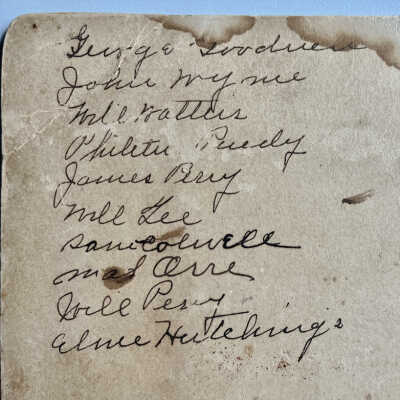 George Goodner
John Wyme
Will Watter
Philetu Purdy
James Perry
Will Lee
Sam Colwell
mas Orre
Will Pery
Elme Hutchings